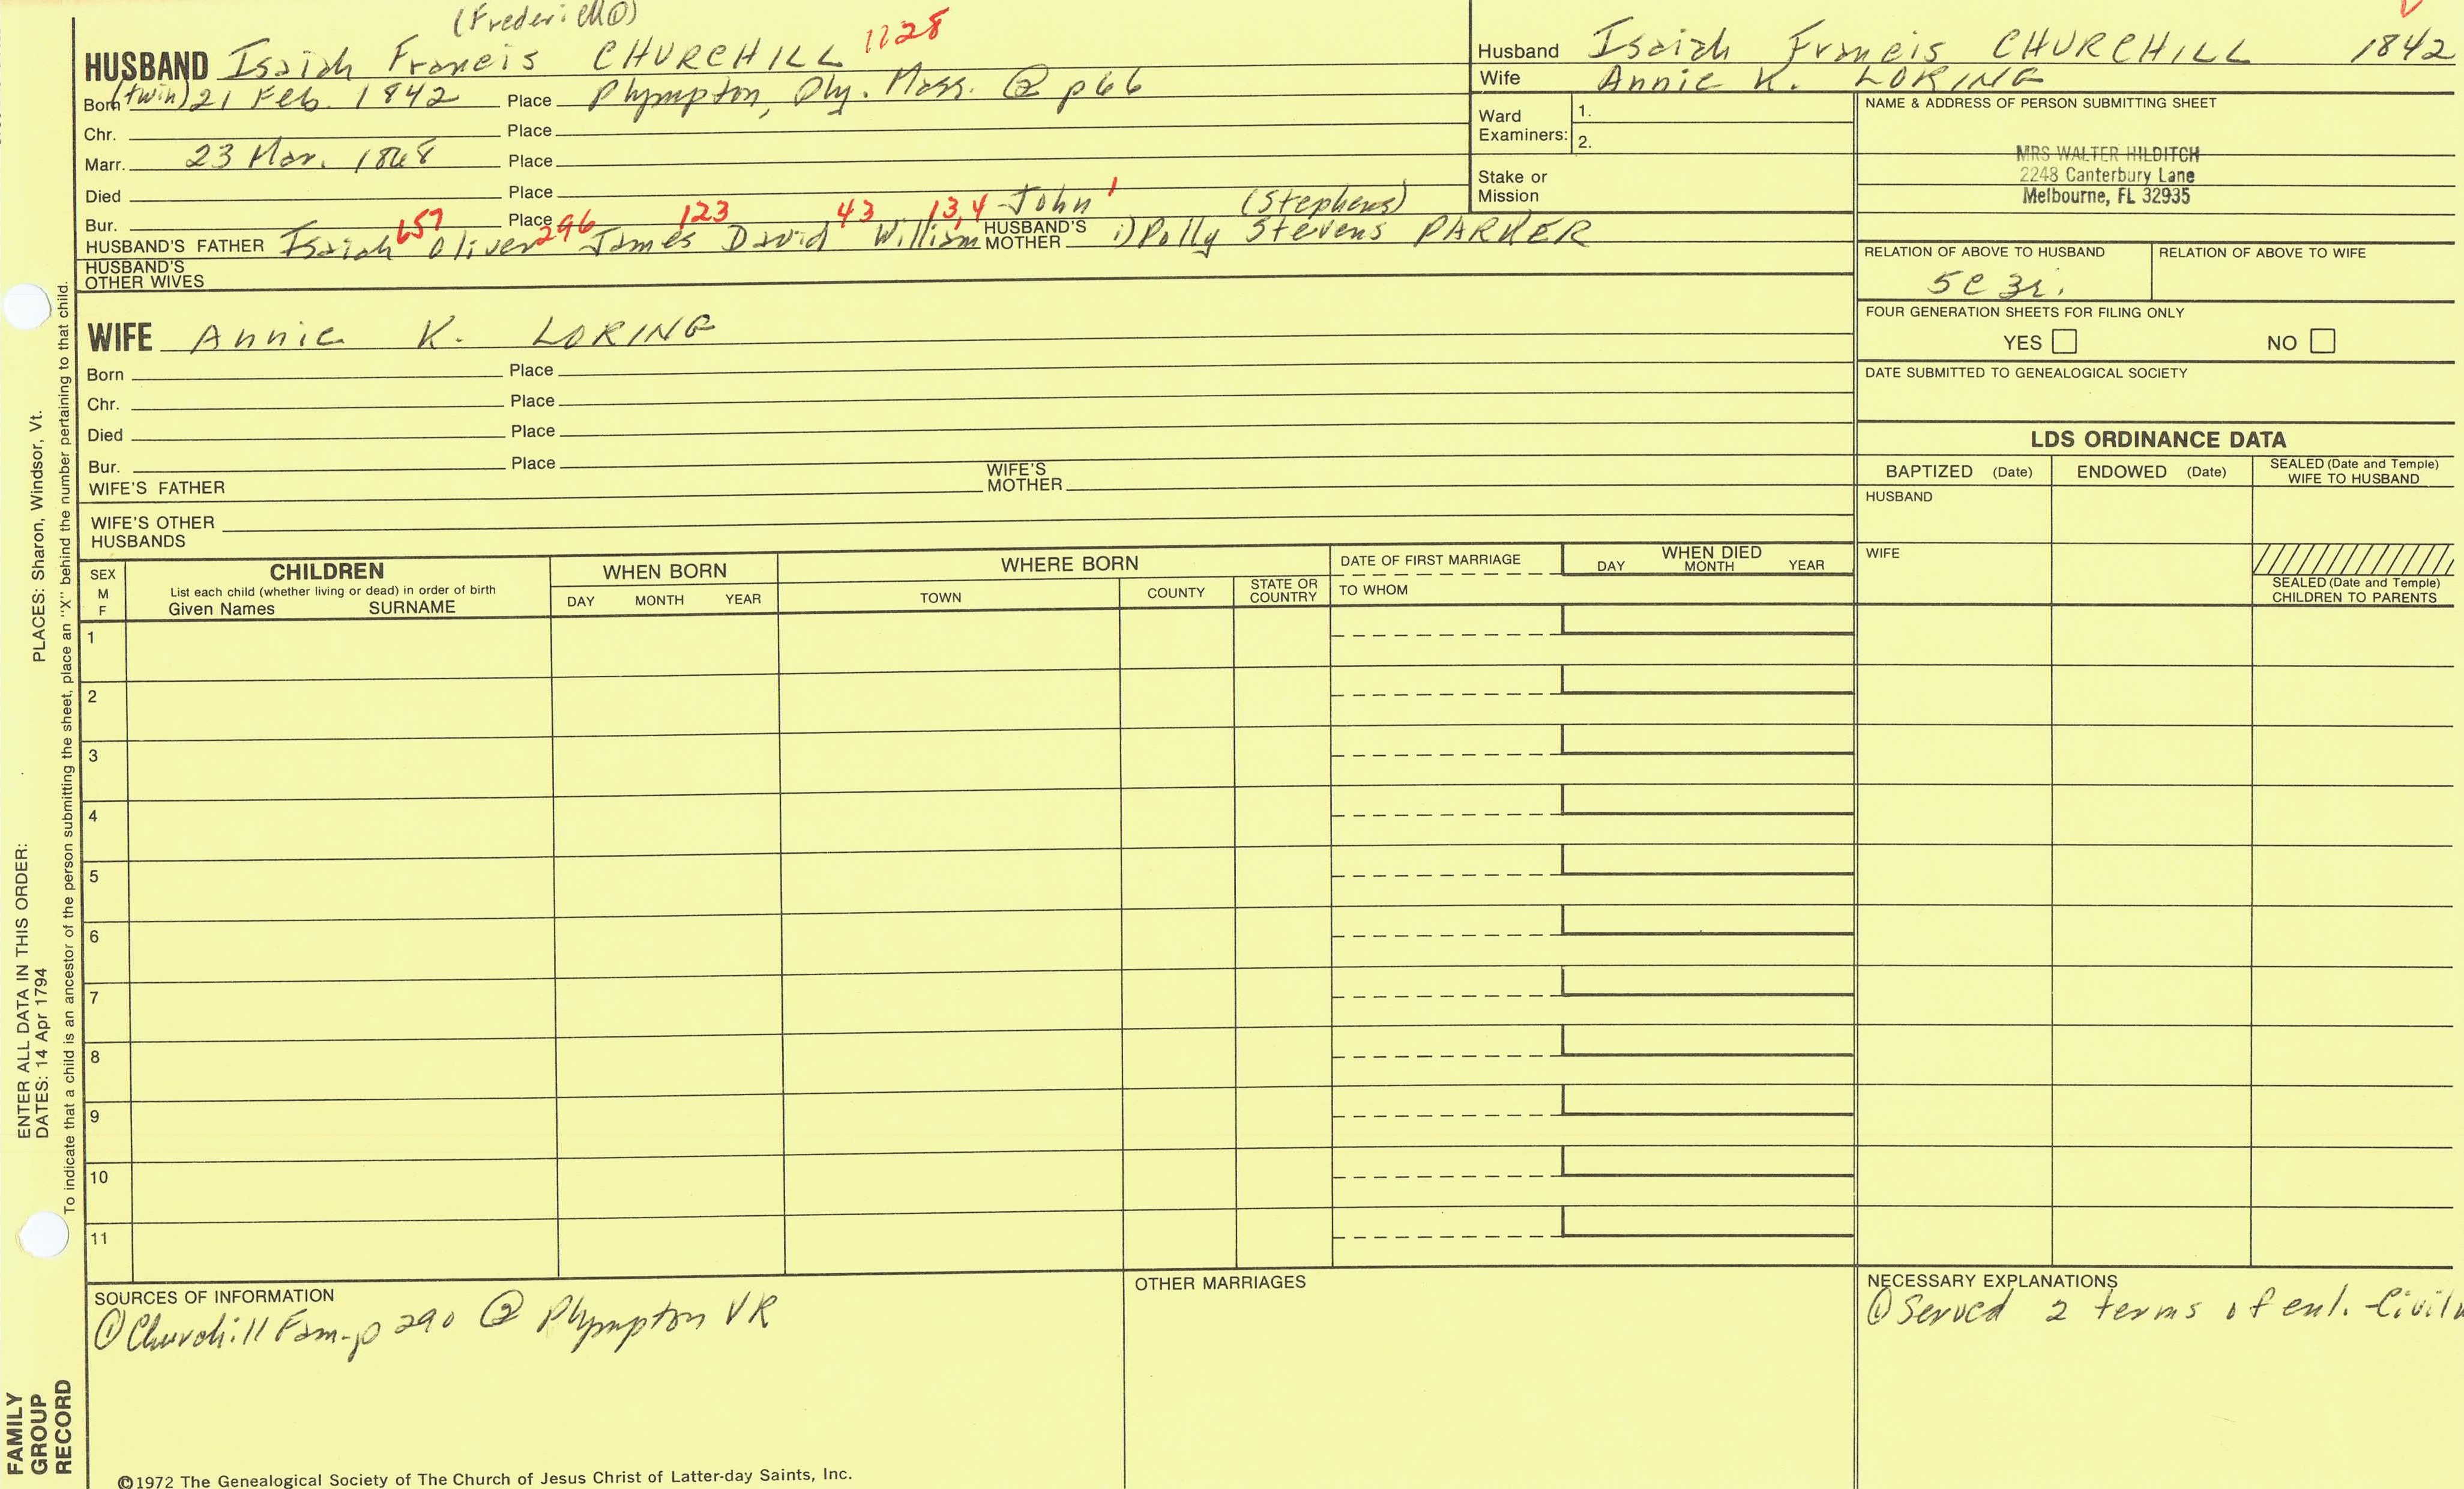 (Frederick②)
HUSBAND Isaiah Francis CHURCHILL 1128
Born (twin) 21 Feb. 1842 Place Plympton, Ply. Mass. ② p66
Chr. Place
Marr. 23 Mar. 1868 Place
Died Place
Bur. Place
657 296 123 43 13,4 John 1 (Stephens)
HUSBAND'S FATHER Isaiah Oliver James David William HUSBAND'S MOTHER 1) Polly Stevens PARKER
HUSBAND'S OTHER WIVES
WIFE Annie K. LORING
Born Place
Chr. Place
Died Place
Bur. Place
WIFE'S FATHER WIFE'S MOTHER
WIFE'S OTHER HUSBANDS
Husband Isaiah Francis CHURCHILL 1842
Wife Annie K. LORING
Ward Examiners: 1.
2.
Stake or Mission
NAME & ADDRESS OF PERSON SUBMITTING SHEET
MRS WALTER HILDITCH
2248 Canterbury Lane
Melbourne, FL 32935
RELATION OF ABOVE TO HUSBAND RELATION OF ABOVE TO WIFE
5C 3r.
FOUR GENERATION SHEETS FOR FILING ONLY
YES NO
DATE SUBMITTED TO GENEALOGICAL SOCIETY
LDS ORDINANCE DATA
BAPTIZED (Date) ENDOWED (Date) SEALED (Date and Temple) WIFE TO HUSBAND
HUSBAND
WIFE
SEALED (Date and Temple) CHILDREN TO PARENTS
SEX M F
CHILDREN
List each child (whether living or dead) in order of birth
Given Names SURNAME
WHEN BORN
DAY MONTH YEAR
WHERE BORN
TOWN COUNTY STATE OR COUNTRY
DATE OF FIRST MARRIAGE
TO WHOM
WHEN DIED
DAY MONTH YEAR
1
2
3
4
5
6
7
8
9
10
11
SOURCES OF INFORMATION
① Churchill Fam-p 290 ② Plympton VR
OTHER MARRIAGES
NECESSARY EXPLANATIONS
① Served 2 terms of enl. Civil
©1972 The Genealogical Society of The Church of Jesus Christ of Latter-day Saints, Inc.
PLACES: Sharon, Windsor, Vt.
ENTER ALL DATA IN THIS ORDER:
DATES: 14 Apr 1794
To indicate that a child is an ancestor of the person submitting the sheet, place an "X" behind the number pertaining to that child.
FAMILY
GROUP
RECORD